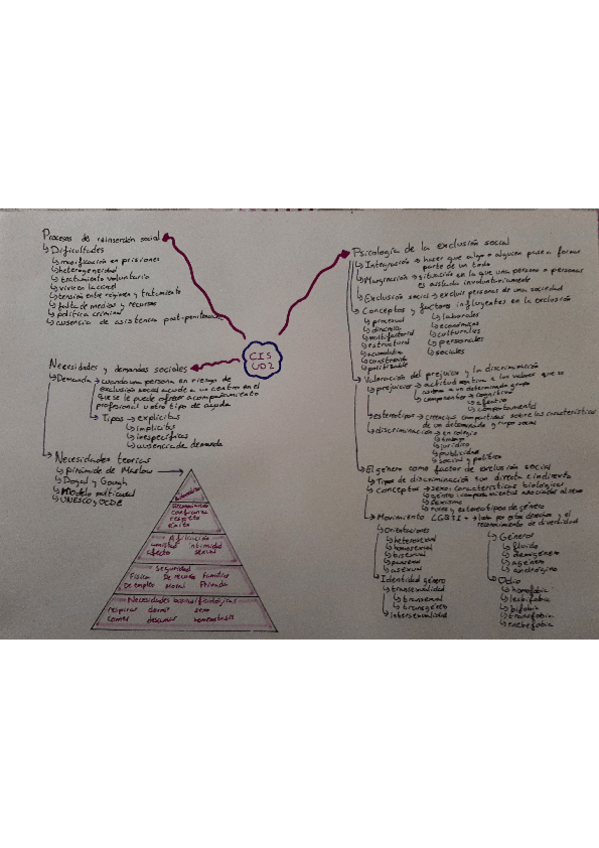 Procesos de reinserción social
↳ Dificultades
↳ masificación en prisiones
↳ heterogeneidad
↳ tratamiento voluntario
↳ vivir en la cárcel
↳ tensión entre régimen y tratamiento
↳ falta de medios y recursos
↳ política criminal
↳ ausencia de asistencia post-penitenciaria
CIS
UD2
Necesidades y demandas sociales
↳ Demanda → cuando una persona en riesgo de
exclusión social acude a un centro en el
que se le puede ofrecer acompañamiento
profesional u otro tipo de ayuda
↳ Tipos → explícitas
↳ implícitas
↳ inespecíficas
↳ ausencia de demanda
↳ Necesidades teorías
↳ pirámide de Maslow
↳ Doyal y Gough
↳ Modelo
↳ UNESCO y OCDE
Reconocimiento
confianza
respeto
éxito
Afiliación
amistad intimidad
afecto sexual
Seguridad
Física De recursos Familiar
De empleo Moral Privada
Necesidades básicas/fisiológicas
respirar dormir sexo
comer descansar homeostasis
Psicología de la exclusión social
↳ Integración → hacer que algo o alguien pase a formar
parte de un todo
↳ Marginación → situación en la que una persona o personas
es aislada involuntariamente
↳ Exclusión social → excluir personas de una sociedad
↳ Conceptos y factores influyentes en la exclusión
↳ procesual
↳ dinámica
↳ multifactorial
↳ estructural
↳ acumulativa
↳ laborales
↳ económicas
↳ culturales
↳ personales
↳ sociales
↳ Valoración del prejuicio y la discriminación
↳ prejuicio → actitud negativa a los valores que se
asigna a un determinado grupo
↳ componentes → cognitivo
↳ afectivo
↳ comportamental
↳ estereotipos → creencias compartidas sobre las características
de un determinado grupo social
↳ discriminación → en colegio
↳ trabajo
↳ jurídico
↳ publicidad
↳ social y política
↳ El género como factor de exclusión social
↳ Tipos de discriminación son directa e indirecta
↳ Conceptos → sexo: características biológicas
↳ género:
↳ sexismo
↳ roles y estereotipos de género
↳ Movimiento LGBTI → lucha por estos derechos y el
reconocimiento de diversidad
↳ Orientaciones
↳ heterosexual
↳ homosexual
↳ bisexual
↳ pansexual
↳ asexual
↳ Identidad género
↳ transexualidad
↳ transexual
↳ transgénero
↳ intersexualidad
↳ Género
↳ fluido
↳ demigénero
↳ agénero
↳ andrógino
↳ Odio
↳ homofobia
↳ lesbofobia
↳ bifobia
↳ transfobia
↳ enebefobia